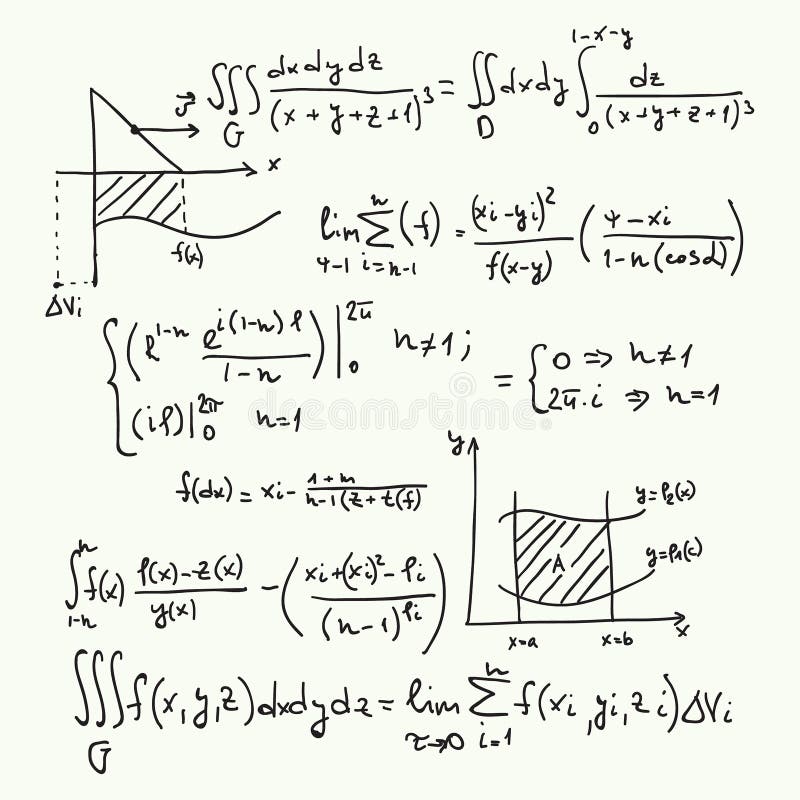 ∭_G dxdydz/(x+y+z+1)³ = ∬_D dxdy ∫_0^{1-x-y} dz/(x+y+z+1)³
x
f(x)
ΔVi
lim_{φ-1} ∑_{i=n-1}^{n} (f) = (xi-yi)²/f(x-y) (φ-xi/1-n(cosα))
{(ℓ^{1-n} e^{i(1-n)ℓ}/1-n)|_0^{2π} n≠1;
(iℓ)|_0^{2π} n=1
= {0 ⇒ n≠1
2π·i ⇒ n=1
f(dx) = xi - 1+m/n-1(z+t(f)
y
y=ρ2(x)
y=ρ1(c)
A
x=a x=b x
∫_{1-n}^{n} f(x) ρ(x)-z(x)/y(x) - (xi+(xi)²-ρi/(n-1)^{ρi})
∭_G f(x,y,z)dxdydz = lim_{τ→0} ∑_{i=1}^{n} f(xi,yi,zi)ΔVi
dreamstime